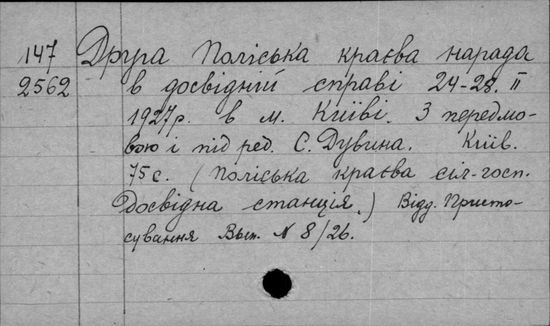 147 Друга Поліська краєва нарада
2562 в досвідній справі 24-28. II
1927 р. в м. Київі. З передмо-
вою і під ред. С. Дувина. Київ.
75 с. (Поліська краєва сіл-госп.
Досвідна станція.) Відд. Присто-
сування Вып. N 8/26.